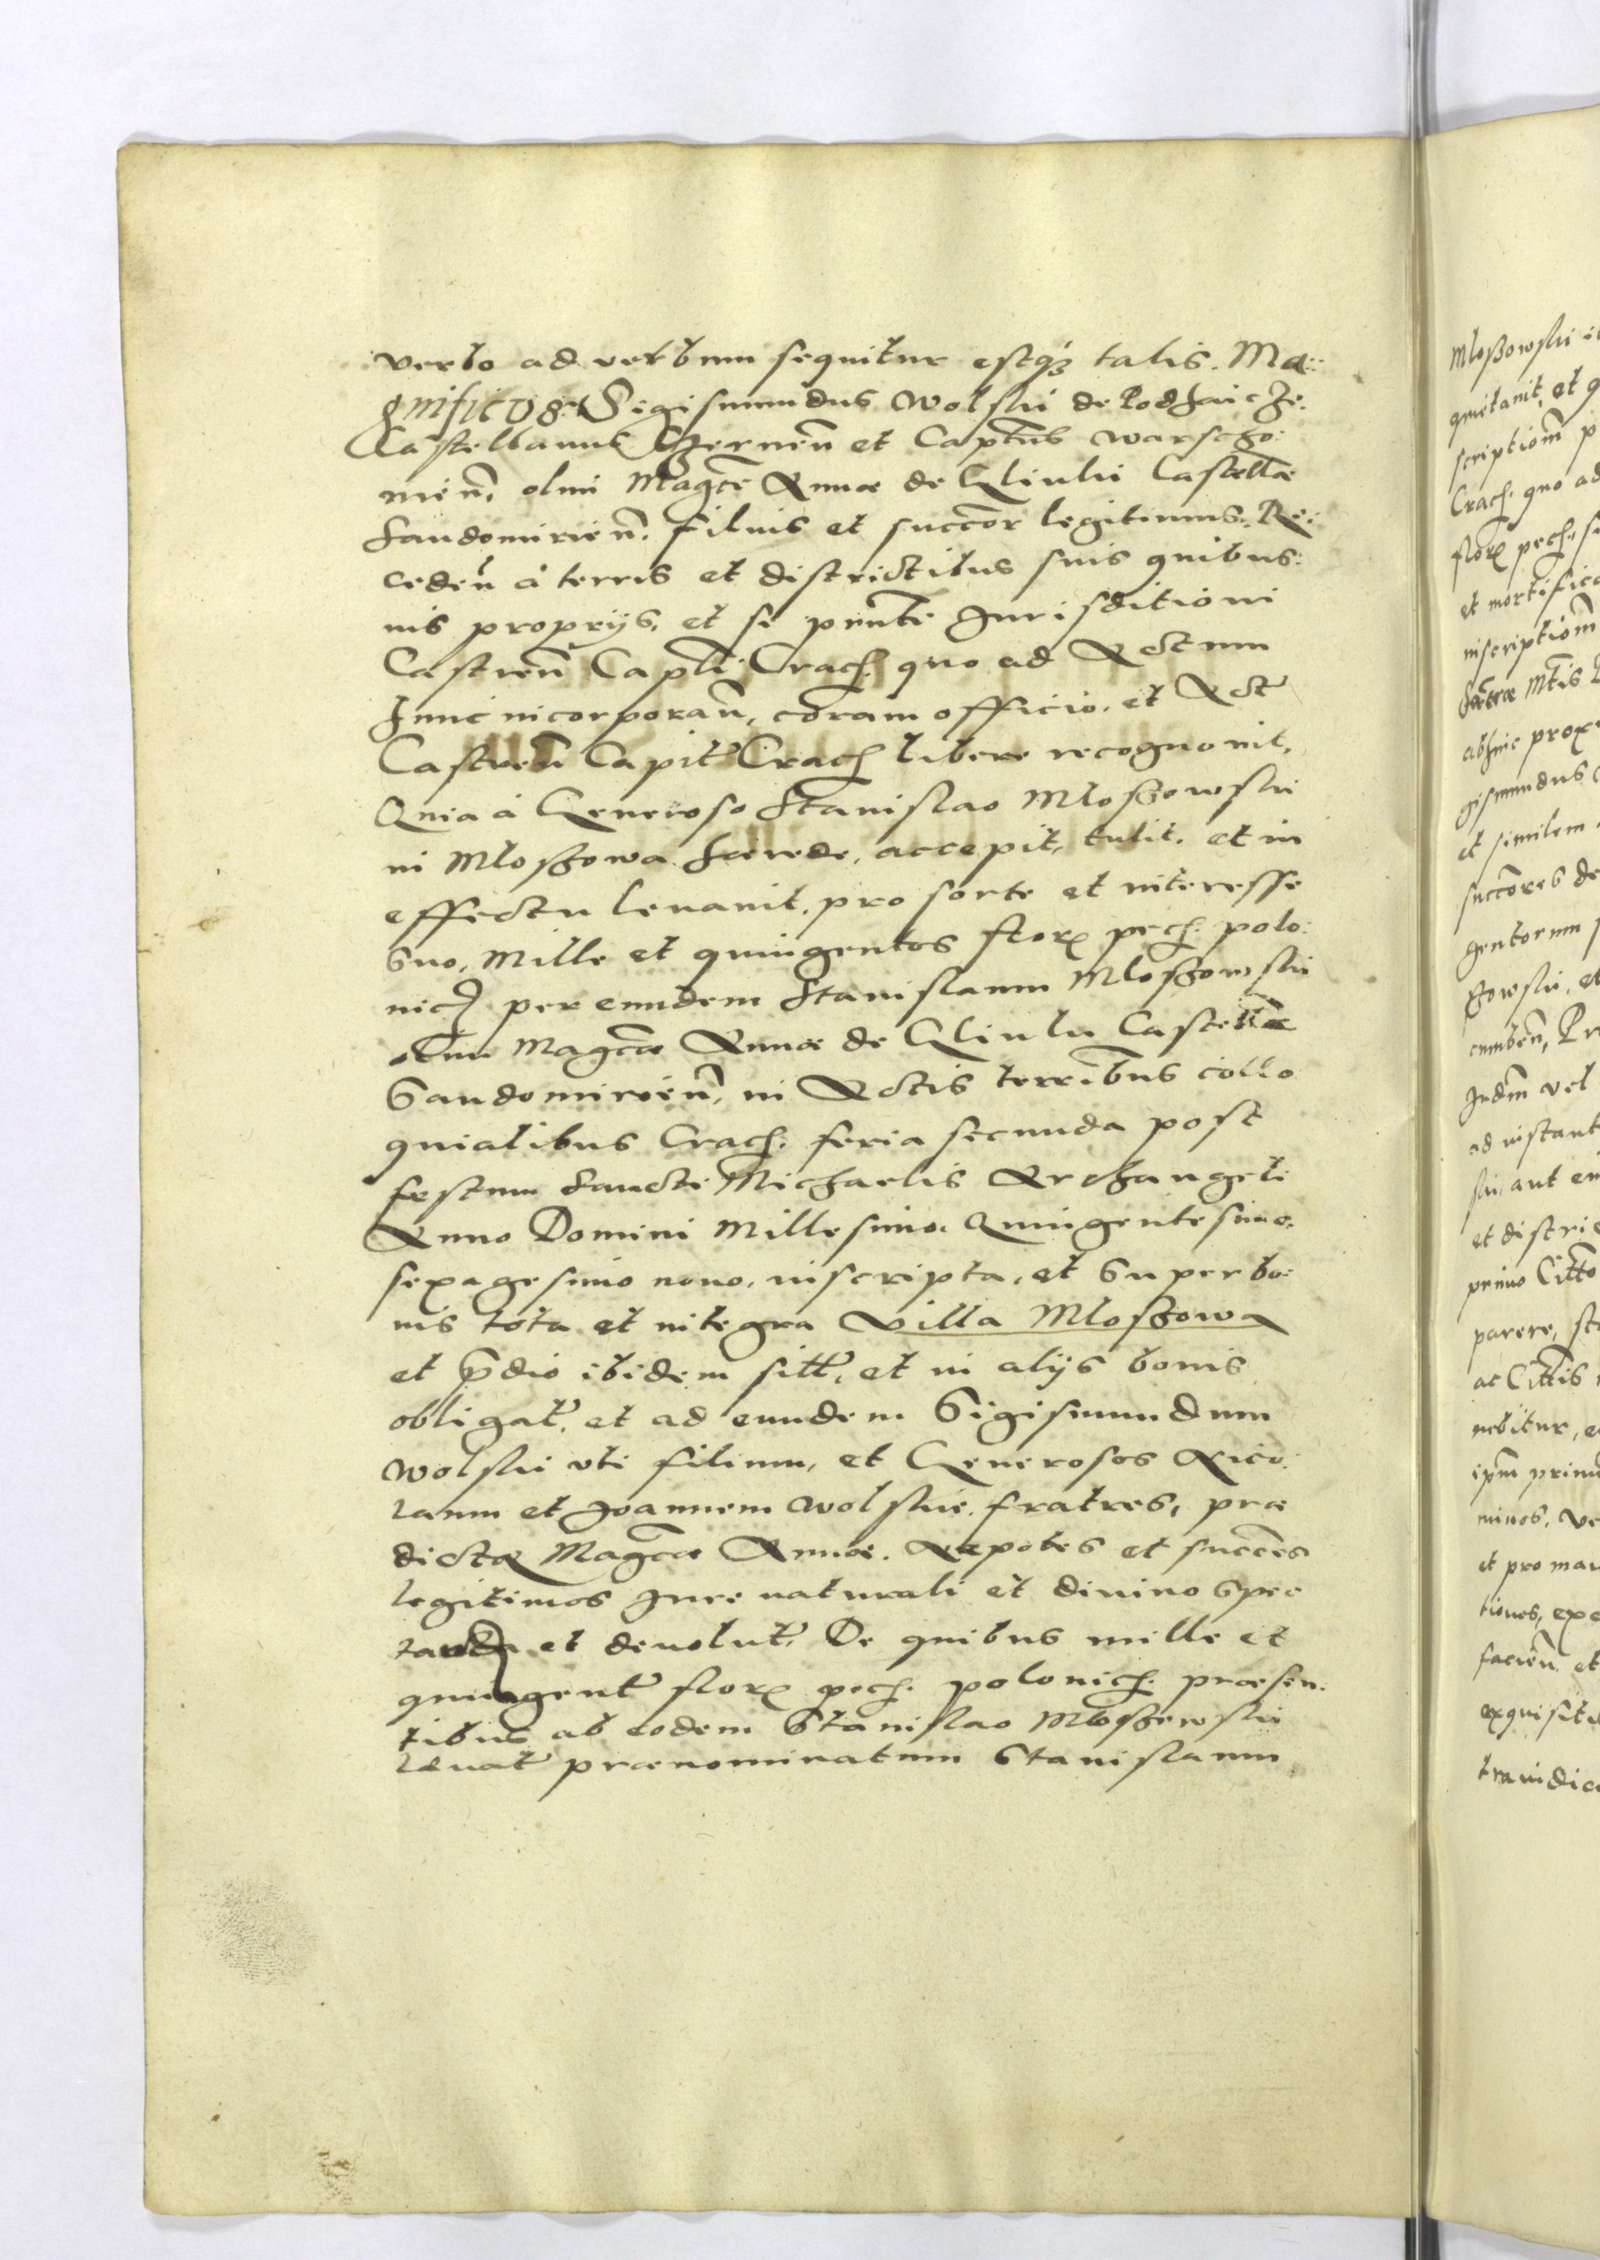 verbo ad verbum sequitur estq3 talis. Ma:
gnificus Sigismundus Wolski de Podhaicze.
Castellanus Czernen et Captus Warscho:
nien, olim Magce Annæ de Gliuki Castellæ
Sandomirien. filius et succor legitimus. Re:
ceden à terris et districtibus suis quibus:
nis proprijs, et se pnte Jurisditioni
Castren Captli Crach. quo ad Actum
hunc incorporan, coram officio. et Act
Castren Capit Crach libere recognouit.
Quia à Generoso Stanislao Mloszowski
in Mloszowa hærede, accepit, tulit. et in
effectu leuauit. pro sorte et interesse
suo, Mille et quingentos flor pech. polo:
nich per eundem Stanislaum Mloszowski
olim Magcæ Annæ de Gliuki Castellæ
Sandomirien, in Actis terribus collo
quialibus Crach. feria secunda post
festum Sancti Michaelis Archangeli
Anno Domini Millesimo. Quingentesimo.
sexagesimo nono, inscripta, et super bo:
nis tota et integra Villa Mloszowa
et pdio ibidem sitt, et in alijs bonis
obligat, et ad eundem Sigismundum
Wolski vti filium, et Generosos Nico:
laum et Joannem Wolskie. fratres, præ
dictæ Magcæ Annæ. Nepotes et succes
legitimos Jure naturali et diuino spec
et deuolut. De quibus mille et
quingent flor pech. polonich. præsen.
tibus ab eodem Stanislao Mloszowski
leuat prænominatum Stanislaum
Mloszowski
quietauit, et q
scriptiom p
Crach. quo ad
flor pech. s
et mortifica
inscriptiom
Mtis
abhinc prox
gismundus
et similem
succores de
gentorum
szowski, et
cumben, Pr
Judm vel
ad instant
ski, aut eu
et distri
primo Citto
parere, st
ac Cittis
nebitur, e
ipm prim
minos, ve
et pro man
tiones, exe
facien, et
exquisit
tranidic